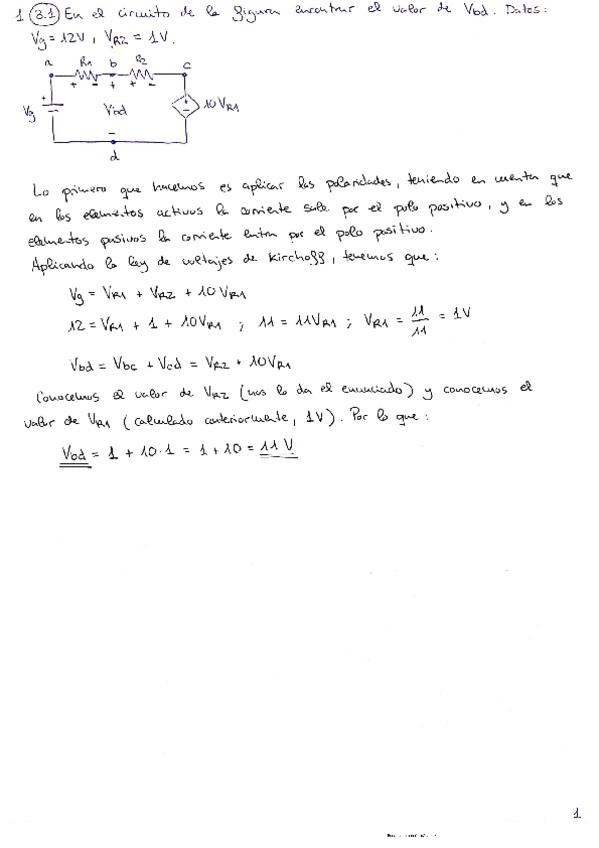 1 (3.1) En el circuito de la figura encontrar el valor de Vbd. Datos:
Vg = 12V, VR2 = 1V.
a R1 b R2 c
+ - + + -
+
Vg Vbd + - 10VR1
-
d
Lo primero que hacemos es aplicar las polaridades, teniendo en cuenta que
en los elementos activos la corriente sale por el polo positivo, y en los
elementos pasivos la corriente entra por el polo positivo.
Aplicando la ley de voltajes de Kirchoff, tenemos que:
Vg = VR1 + VR2 + 10VR1
12 = VR1 + 1 + 10VR1 ; 11 = 11VR1 ; VR1 = 11/11 = 1V
Vbd = Vbc + Vcd = VR2 + 10VR1
Conocemos el valor de VR2 (nos lo da el enunciado) y conocemos el
valor de VR1 (calculado anteriormente, 1V). Por lo que:
Vbd = 1 + 10·1 = 1 + 10 = 11 V
1